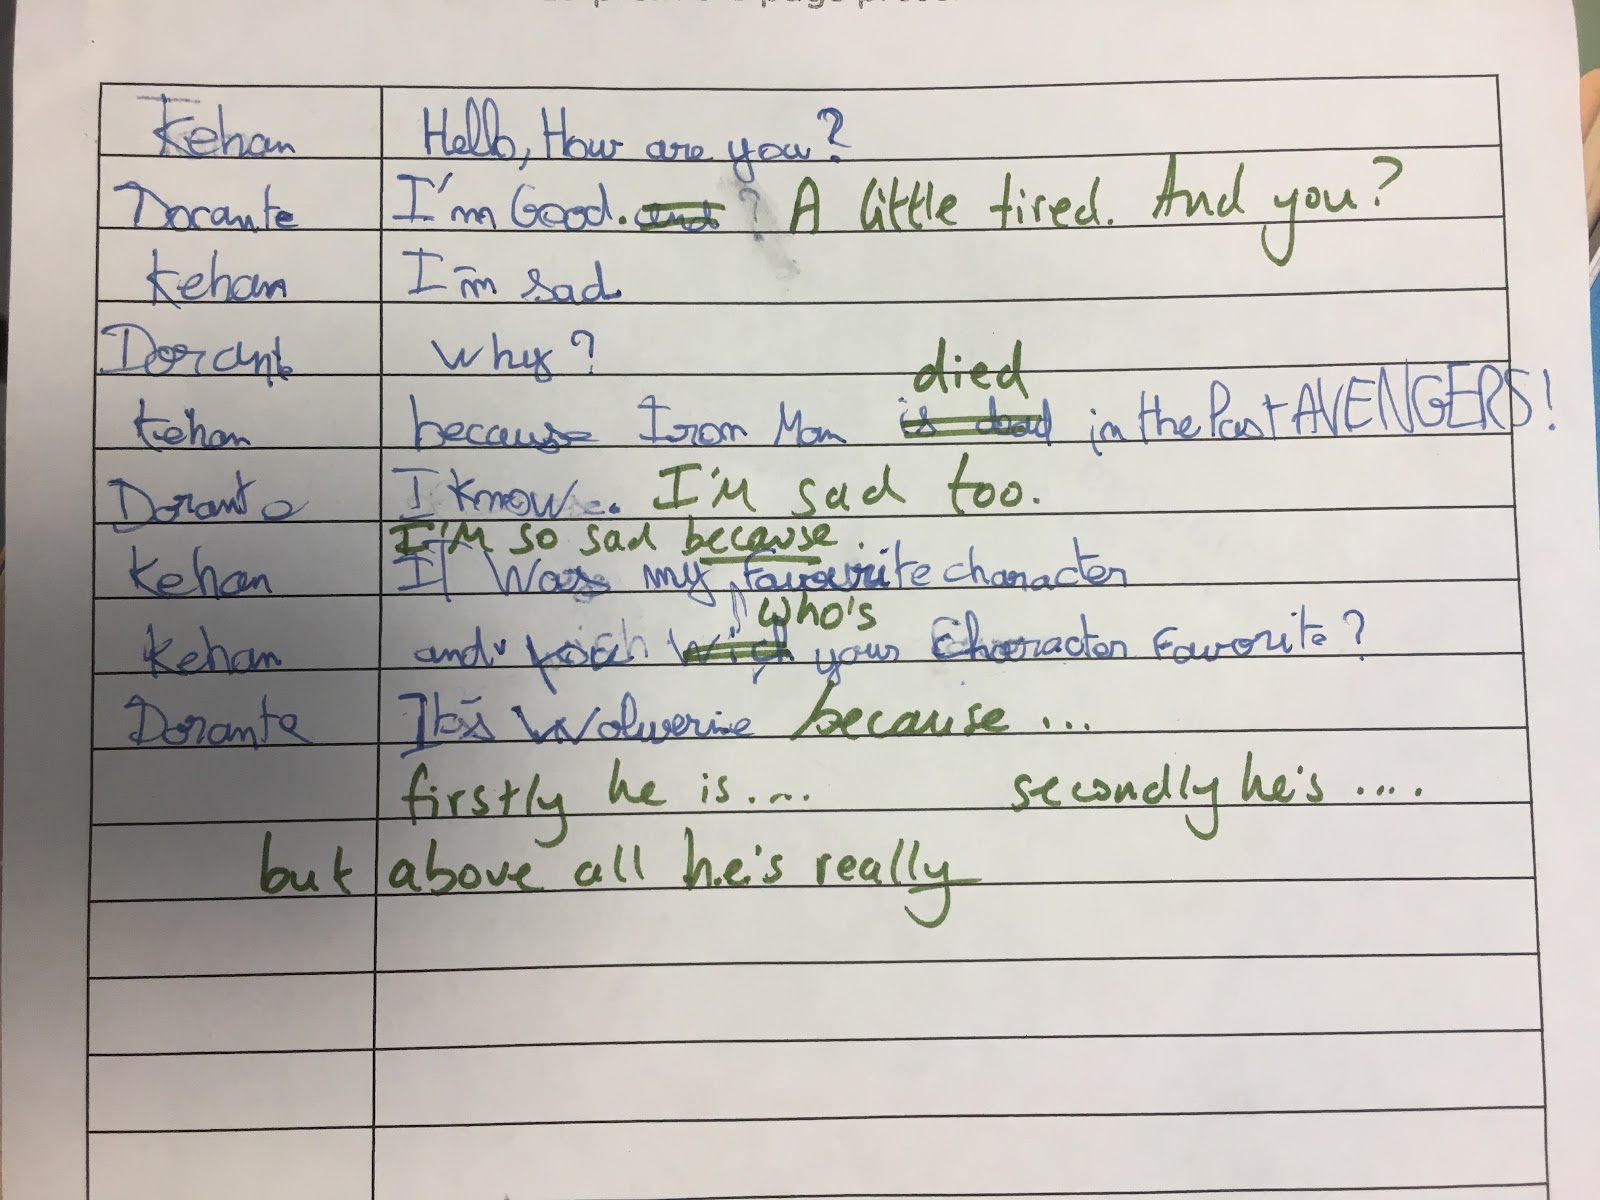 Kehan Hello, How are you?
Dorante I'm Good. and ? A little tired. And you?
Kehan I'm sad
Dorante Why?
died
Kehan because Iron Man is dead in the Past AVENGERS!
Dorante I know... I'm sad too.
I'm so sad because
Kehan It Was my favourite character
who's
Kehan and wich your Character Favorite?
Dorante It's Wolwerine because ...
firstly he is.... secondly he's ....
but above all he's really